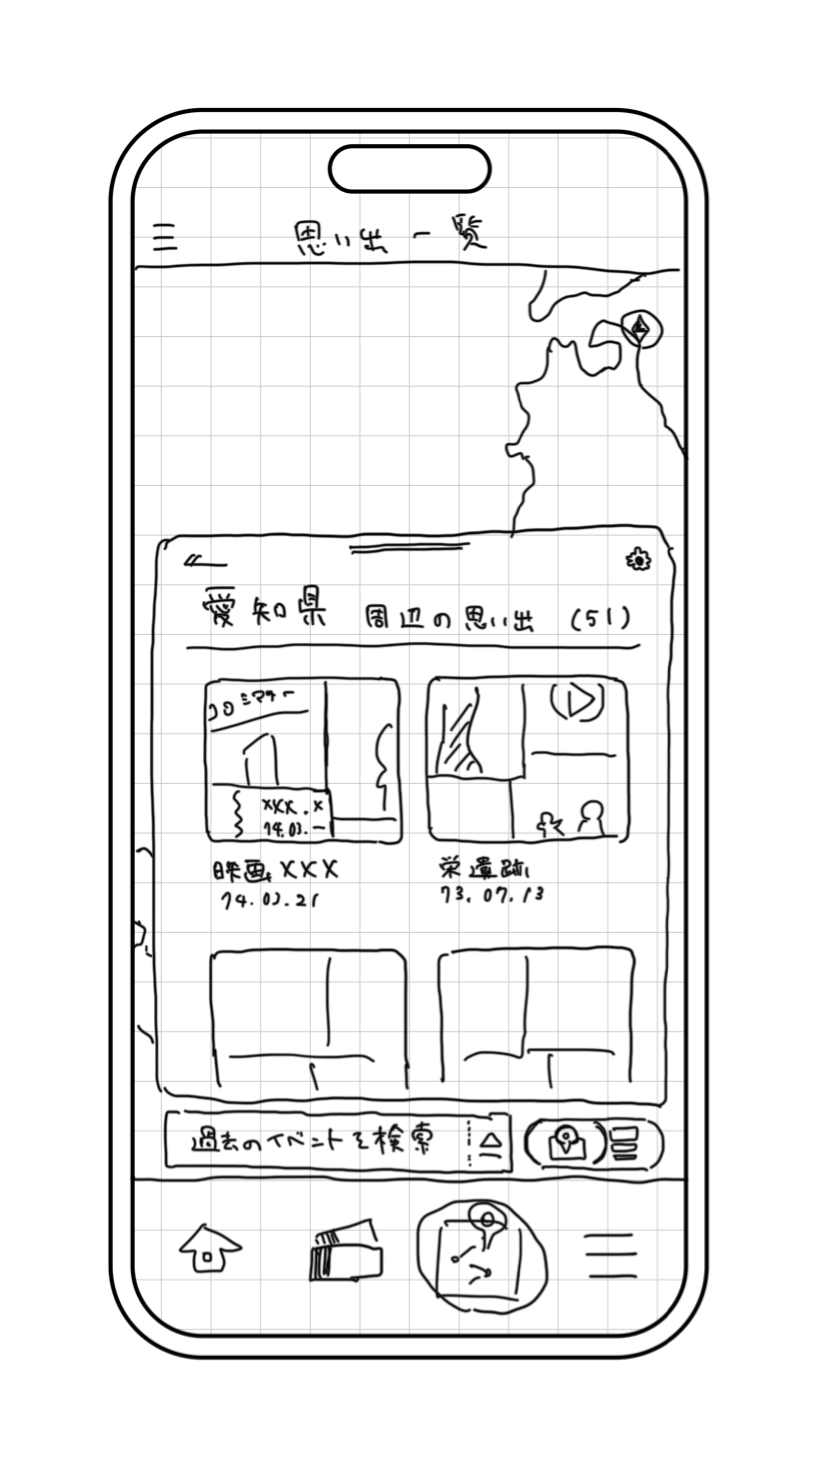 思い出一覧
愛知県 周辺の思い出 (51)
シアター
XXX.X
74.03.
映画 XXX
74.03.21
栄遺跡
73.07.13
過去のイベントを検索